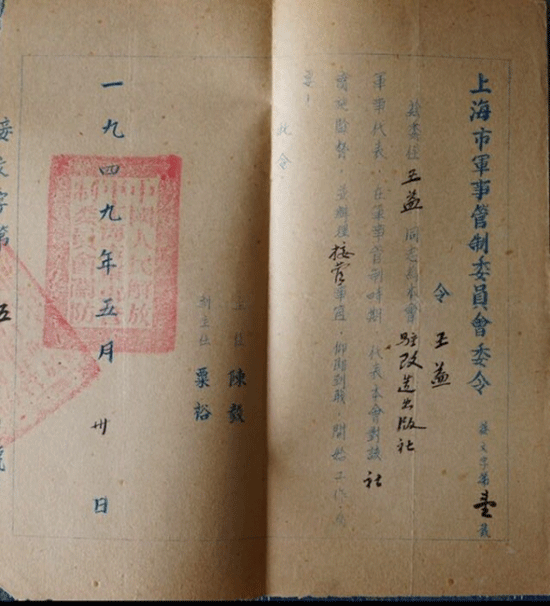 上海市軍事管制委員會委令
委文字第壹號
令 王益
茲委任王益同志為本會駐改造出版社
軍事代表，在軍事管制時期，代表本會對該社
實施監督，並辦理接管事宜，仰即到職，開始工作為
要！
此令
主任 陳毅
副主任 粟裕
一九四九年五月卅日
中國人民解放
制委員會關防
接文字第 五 號